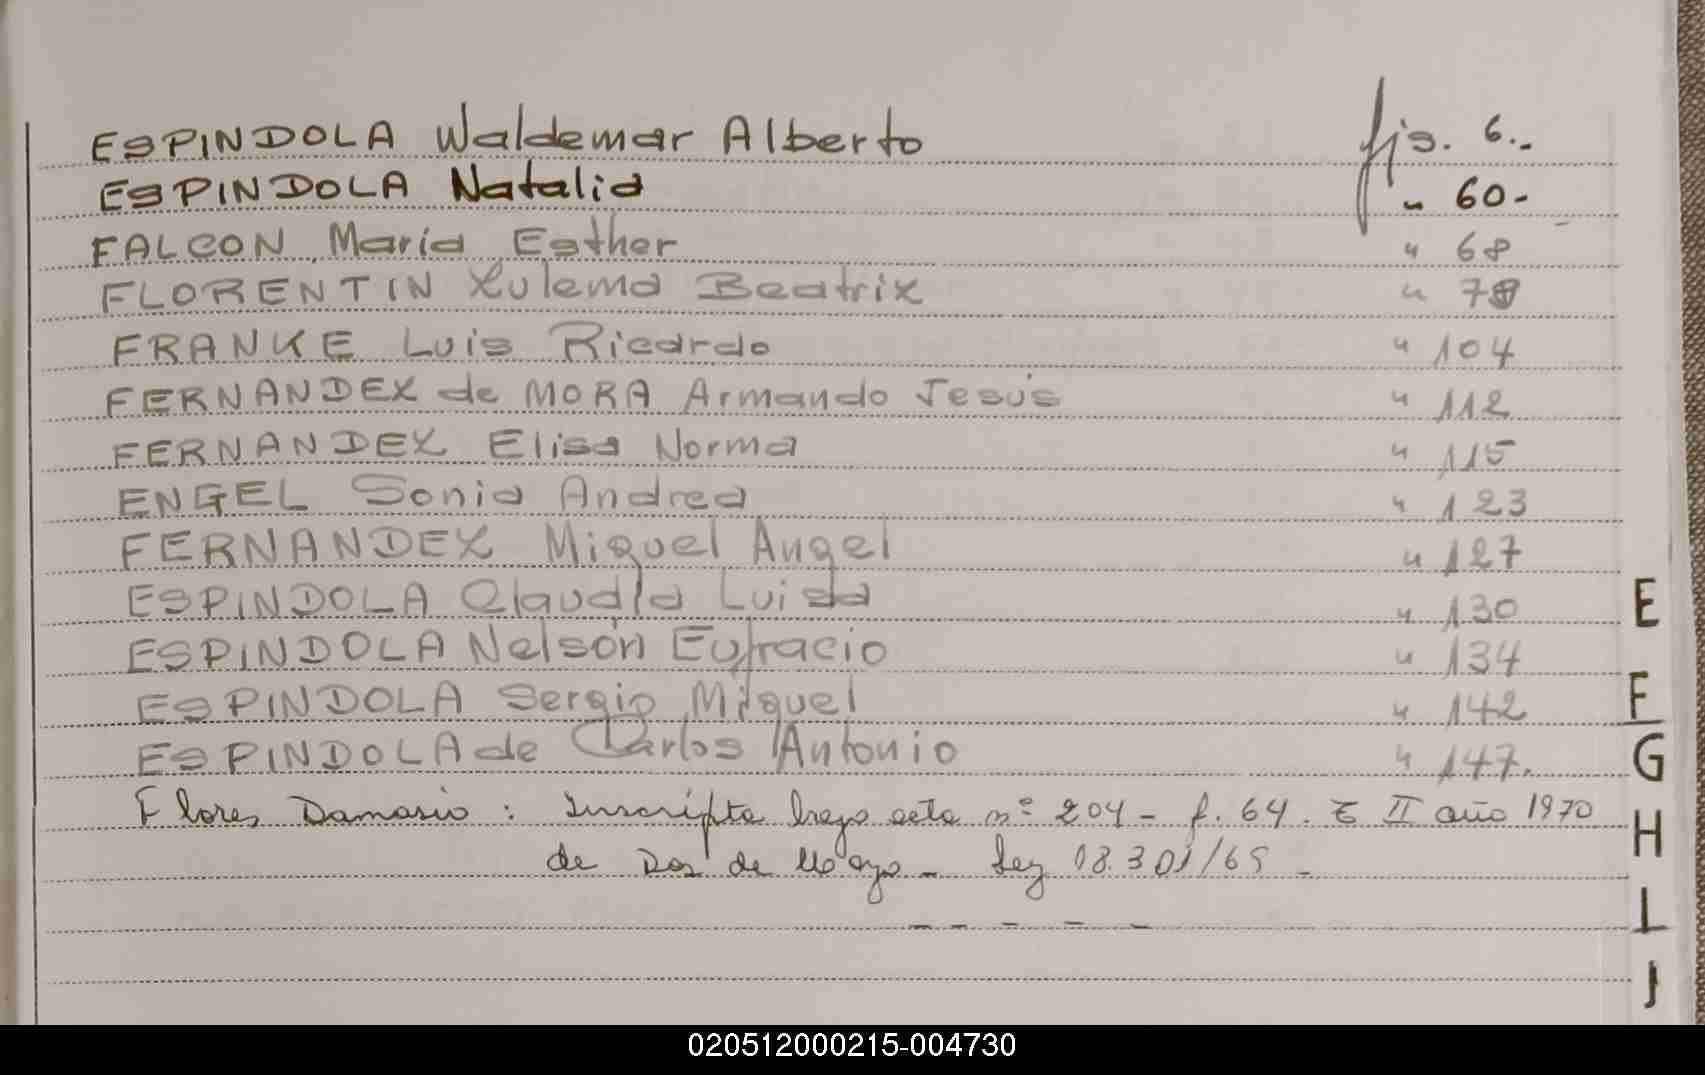 ESPINDOLA Waldemar Alberto fjs. 6.-
ESPINDOLA Natalia " 60-
FALCON Maria Esther " 68
FLORENTIN Zulema Beatriz " 78
FRANKE Luis Ricardo " 104
FERNANDEZ de MORA Armando Jesús " 112
FERNANDEZ Elisa Norma " 115
ENGEL Sonia Andrea " 123
FERNANDEZ Miguel Angel " 127
ESPINDOLA Claudia Luisa " 130
ESPINDOLA Nelson Eufracio " 134
ESPINDOLA Sergio Miguel " 142
ESPINDOLA de Carlos Antonio " 147.
Flores Damasio: Inscripta bajo acta nº 204 - f. 64. T II año 1970
de Dos de Mayo - Ley 18.301/69 -
E
F
G
H
L
J
020512000215-004730